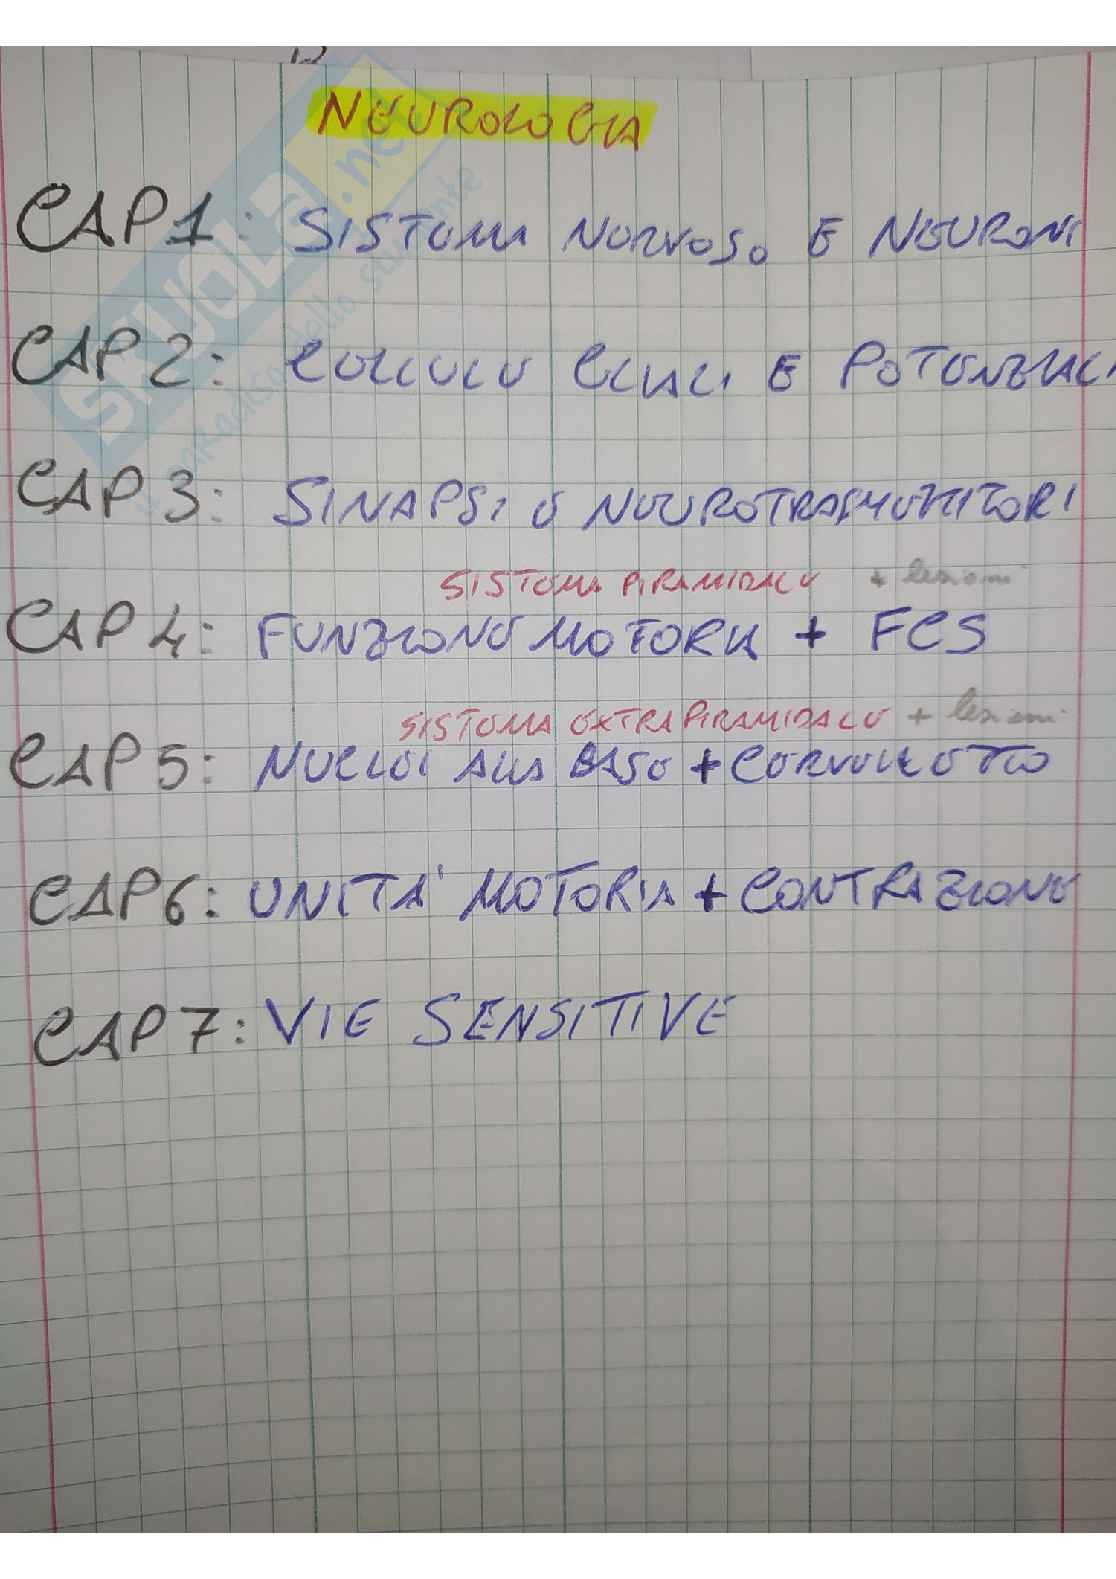 NEUROLOGIA
CAP 1: SISTEMA NERVOSO E NEURONI
CAP 2: CELLULE GLIALI E POTENZIALI
CAP 3: SINAPSI E NEUROTRASMETTITORI
SISTEMA PIRAMIDALE + lesioni
CAP 4: FUNZIONE MOTORIA + FCS
SISTEMA EXTRAPIRAMIDALE + lesioni
CAP 5: NUCLEI ALLA BASE + CERVELLETTO
CAP 6: UNITA' MOTORIA + CONTRAZIONE
CAP 7: VIE SENSITIVE
SKUOLA.net